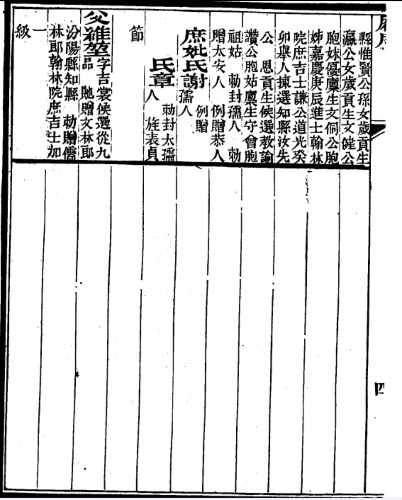 縣惟賢公孫女歲貢生
瀛公女歲貢生文
胞妹優廩生文侗公胞
姊嘉慶庚辰進士翰林
院庶吉士謙公道光癸
卯舉人揀選知縣汝先
公 恩貢生候選教諭
讚公胞姑廩生守會胞
祖姑 勅封孺人 勅
贈太安人 例贈恭人
庶妣氏謝 例贈孺人
氏章 勅封太孺人 旌表貞
節
父維堃 字吉裳候選從九品 貤贈文林郎
汾陽縣知縣 勅贈儒
林郎翰林院庶吉士加
一級
四